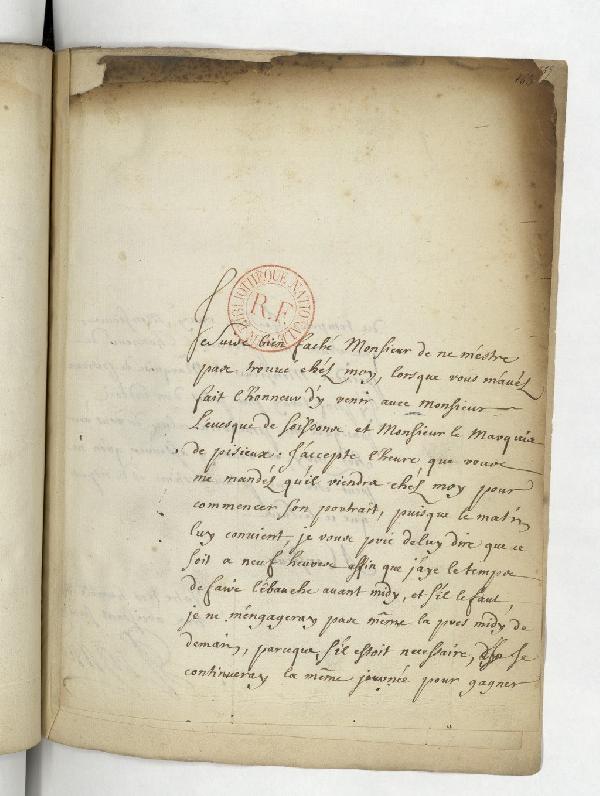 163
BIBLIOTHEQUE NATIONALE
R.F.
Je suis bien faché Monsieur de ne mestre
pas trouvé chéz moy, lorsque vous mavéz
fait l'honneur d'y venir avec Monsieur
L'evesque de Soissons et Monsieur le Marquis
de pisieux. J'accepte l'heure, que vous
me mandéz qu'il viendra chéz moy pour
commencer son portrait, puisque le matin
luy convient, je vous prie de luy dire que ce
soit a neuf heures affin que j'aye le temps
de faire l'ébauche avant midy, et s'il le faut,
je ne m'engageray pas même la pres midy de
demain, parceque s'il estoit necessaire, Je
continueray la même journée pour gagner